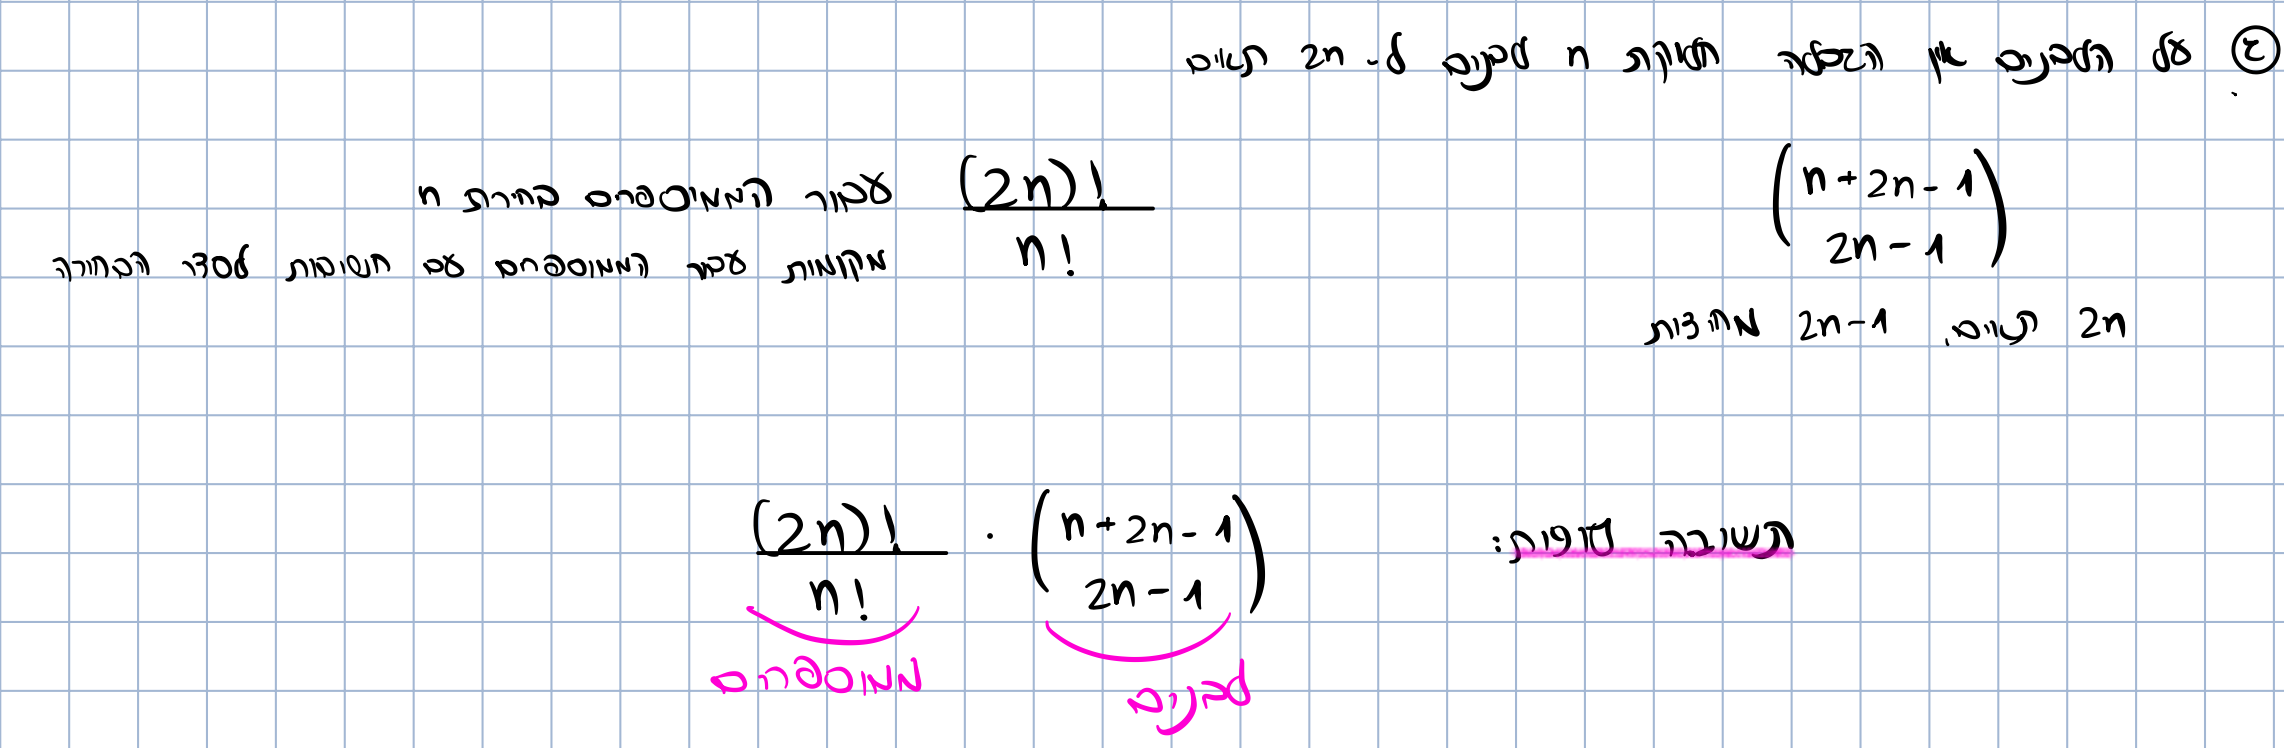 ג) על הלבנים אין הגבלה חלוקת n לבנים ל- 2n תאים
(n+2n-1 \choose 2n-1)
2n תאים, 2n-1 מחיצות
(2n)!/n! עבור הממוספרים בחירת n
מקומות עבור הממוספרים עם חשיבות לסדר הבחירה
תשובה סופית:
(n+2n-1 \choose 2n-1) · (2n)!/n!
לבנים ממוספרים